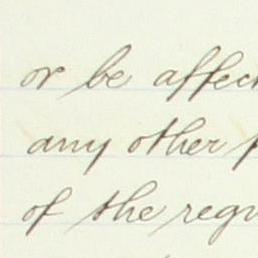 or be affec
any other
of the regu